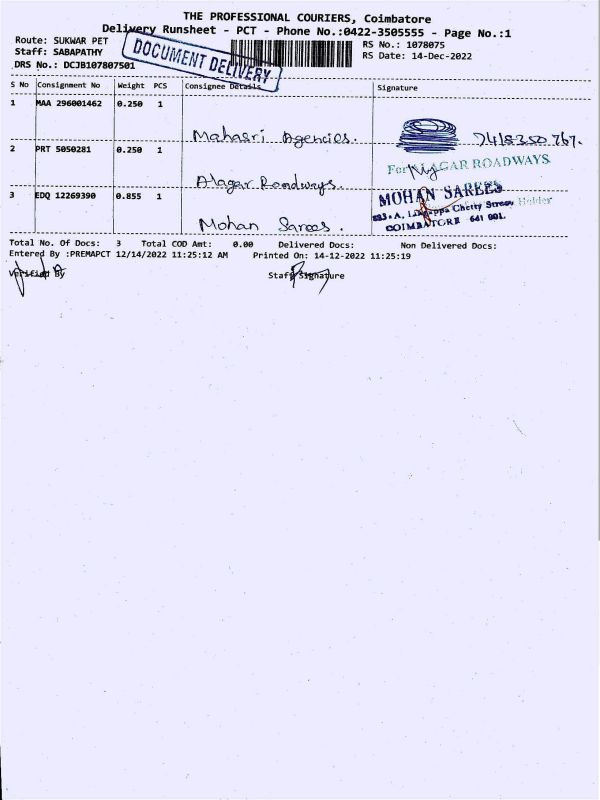 THE PROFESSIONAL COURIERS, Coimbatore
Delivery Runsheet - PCT - Phone No.:0422-3505555 - Page No.:1
Route: SUKWAR PET
RS No.: 1078075
Staff: SABAPATHY
RS Date: 14-Dec-2022
DRS No.: DCJB107807501
DOCUMENT DELIVERY
S No Consignment No Weight PCS Consignee Details Signature
1 MAA 296001462 0.250 1
Mahasri Agencies.
2 PRT 5050281 0.250 1
For ALAGAR ROADWAYS
Alagar Roadways.
3 EDQ 12269390 0.855 1
MOHAN SAREES
Holder
Chetty Street
Mohan Sarees.
COIMBATORE 641 001.
Total No. Of Docs: 3 Total COD Amt: 0.00 Delivered Docs: Non Delivered Docs:
Entered By :PREMAPCT 12/14/2022 11:25:12 AM Printed On: 14-12-2022 11:25:19
Verified By Staff Signature